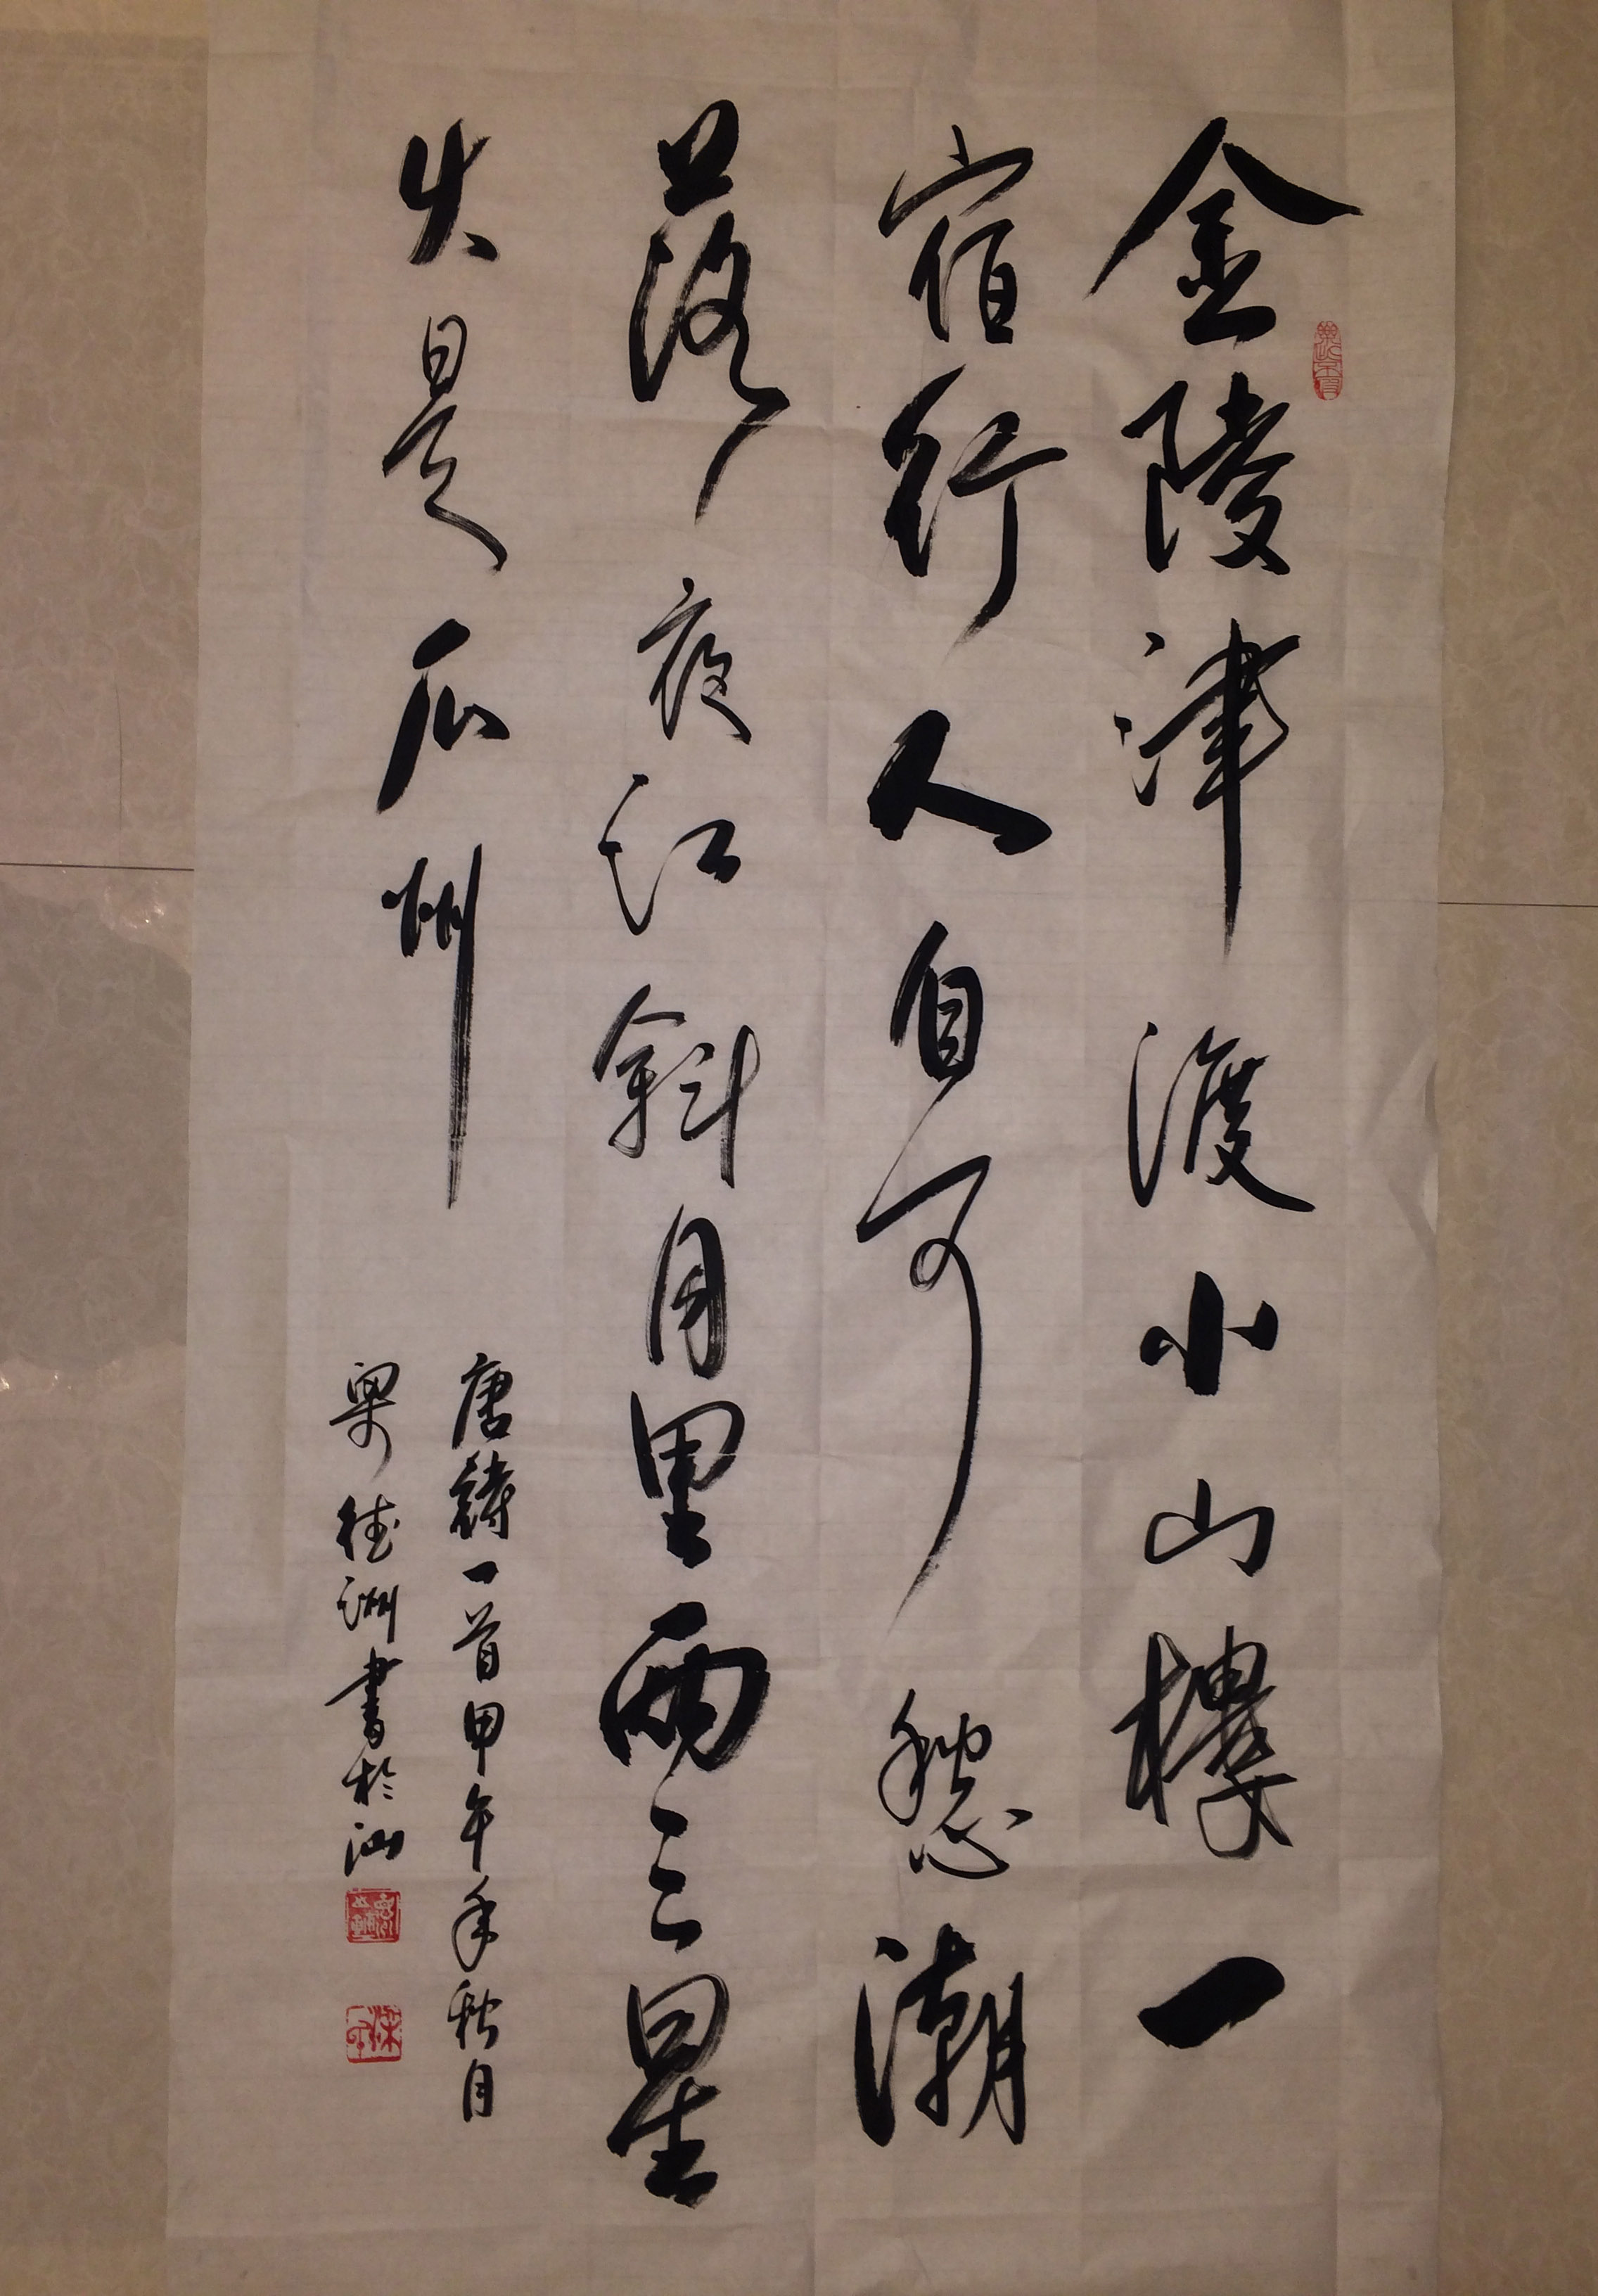 金陵津渡小山楼一
宿行人自可愁潮
落夜江斜月里两三星
火是瓜州
唐詩一首甲午年秋月
梁德洲書於汕